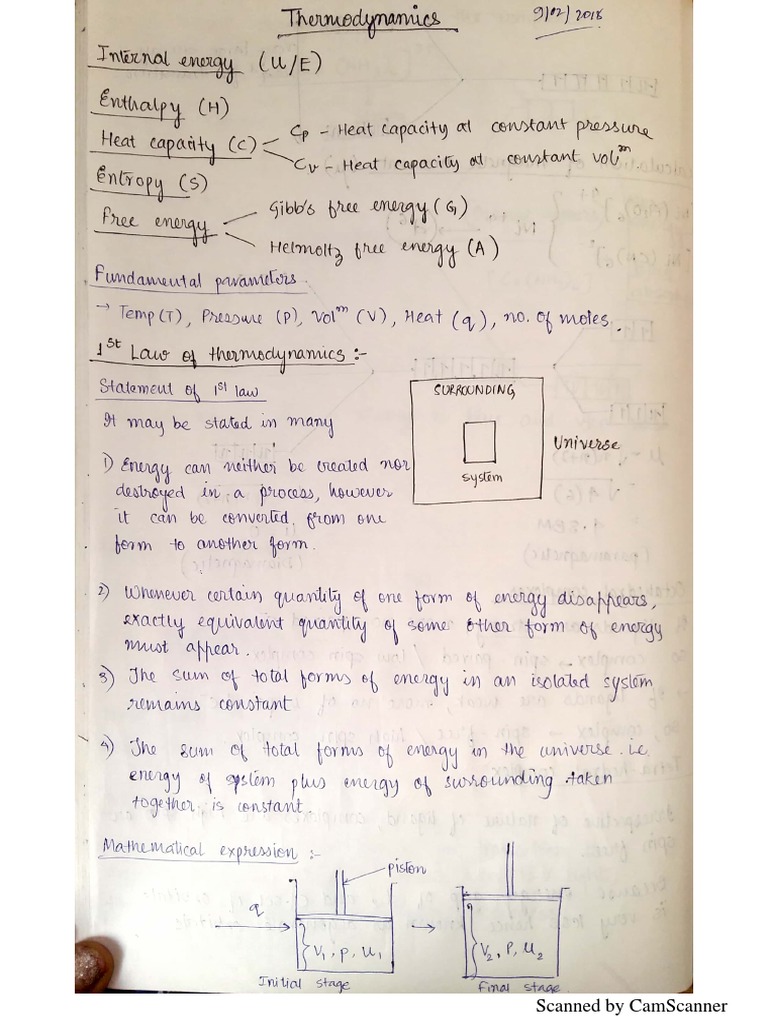 Thermodynamics
9/02/2018
Internal energy (U/E)
Enthalpy (H)
Heat capacity (C)
Cp - Heat capacity at constant pressure
Cv - Heat capacity at constant volm
Entropy (S)
Free energy
Gibb's free energy (G)
Helmoltz free energy (A)
Fundamental parameters
→ Temp (T), Pressure (P), Volm (V), Heat (q), no. of moles.
1st Law of thermodynamics :-
Statement of 1st law
It may be stated in many
SURROUNDING
system
Universe
1) Energy can neither be created nor
destroyed in a process, however
it can be converted from one
form to another form.
2) Whenever certain quantity of one form of energy disappears,
exactly equivalent quantity of some other form of energy
must appear.
3) The sum of total forms of energy in an isolated system
remains constant
4) The sum of total forms of energy in the universe i.e.
energy of system plus energy of surrounding taken
together is constant.
Mathematical expression :-
piston
q
V1, P, U1
→
V2, P, U2
Initial stage
final stage
Scanned by CamScanner